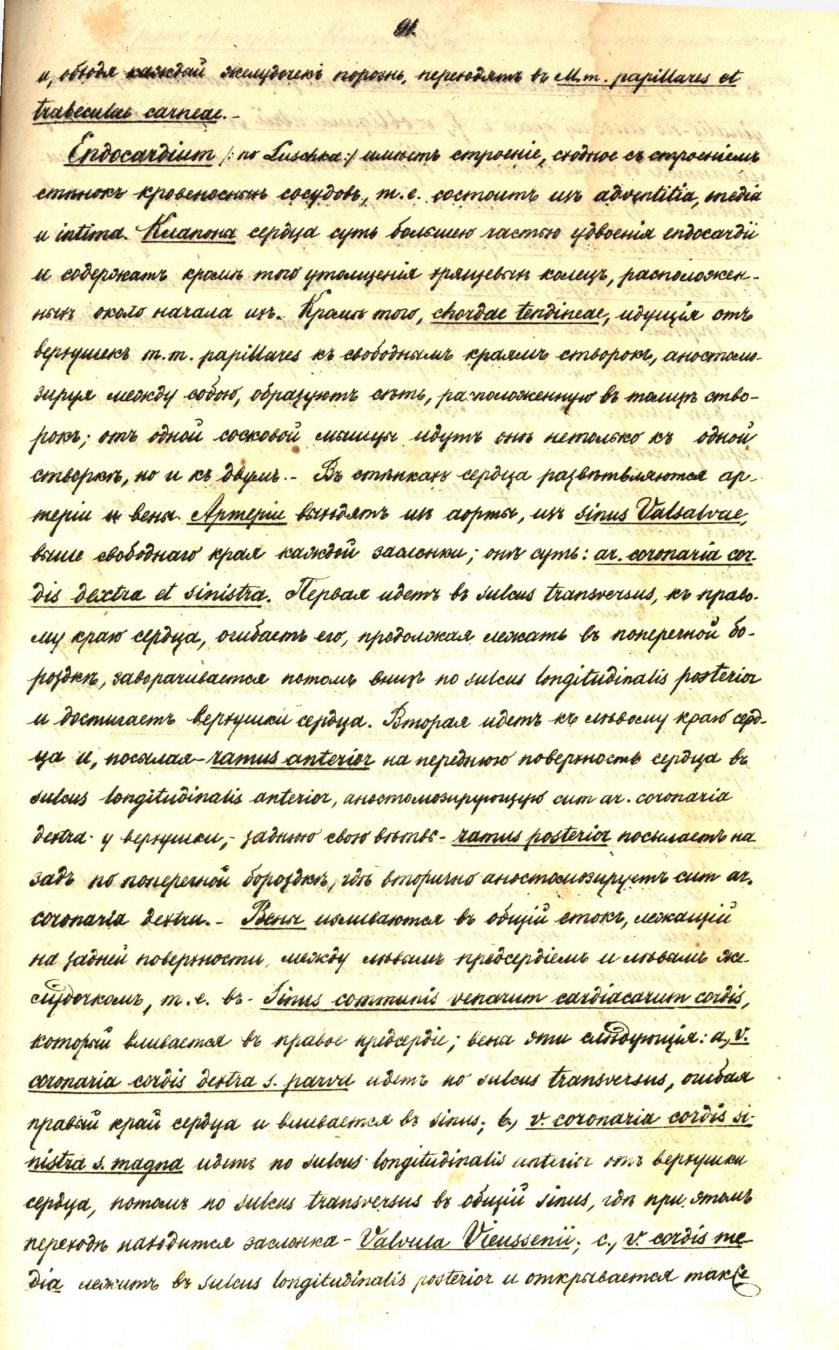 91.
и, обходя каждый желудочекъ порознь, переходятъ въ M.m. papillares et
trabeculae carneae.-
Endocardium /: по Luschka :/ имѣетъ строеніе, сходное съ строеніемъ
стѣнокъ кровеносныхъ сосудовъ, т.е. состоитъ изъ adventitia, media
и intima. Клапоны сердца суть большею частью удвоенія endocardii
и содержатъ кромѣ того утолщенія хрящевыхъ колецъ, расположен-
ныхъ около начала ихъ.- Кромѣ того, chordae tendineae, идущія отъ
верхушекъ m.m. papillares къ свободнымъ краямъ створокъ, аностомо-
зируя между собою, образуютъ сѣть, расположенную въ толщѣ ство-
рокъ; отъ одной сосковой мышцы идутъ онѣ нетолько къ одной
створкѣ, но и къ двумъ.- Въ стѣнкахъ сердца развѣтвляются ар-
теріи и вены. Артеріи выходятъ изъ аорты, изъ sinus Valsalvae,
выше свободнаго края каждой заслонки; онѣ суть: ar. coronaria cor-
dis dextra et sinistra. Первая идетъ въ sulcus transversus, къ право-
му краю сердца, огибаетъ его, продолжая лежать въ поперечной бо-
роздкѣ, заворачивается потомъ внизъ по sulcus longitudinalis posterior
и достигаетъ верхушки сердца. Вторая идетъ къ лѣвому краю серд-
ца и, посылая - ramus anterior на переднюю поверхность сердца въ
sulcus longitudinalis anterior, аностомозирующую cum ar. coronaria
dextra у верхушки,- заднюю свою вѣтвь - ramus posterior посылаетъ на
задъ по поперечной бороздкѣ, гдѣ вторично аностомозируетъ cum ar.
coronaria dextra.- Вены изливаются въ общій стокъ, лежащій
на задней поверхности, между лѣвымъ предсердіемъ и лѣвымъ же-
лудочкомъ, т.е. въ - Sinus communis venarum cardiacarum cordis,
который вливается въ правое предсердіе; вена эти слѣдующія: a, v.
coronaria cordis dextra s. parva идетъ по sulcus transversus, огибая
правый край сердца и вливается въ sinus; b, v. coronaria cordis si-
nistra s. magna идетъ по sulcus longitudinalis anterior отъ верхушки
сердца, потомъ по sulcus transversus въ общій sinus, гдѣ при этомъ
переходѣ находится заслонка - Valvula Vieussenii; c, v. cordis me-
dia лежитъ въ sulcus longitudinalis posterior и открывается также